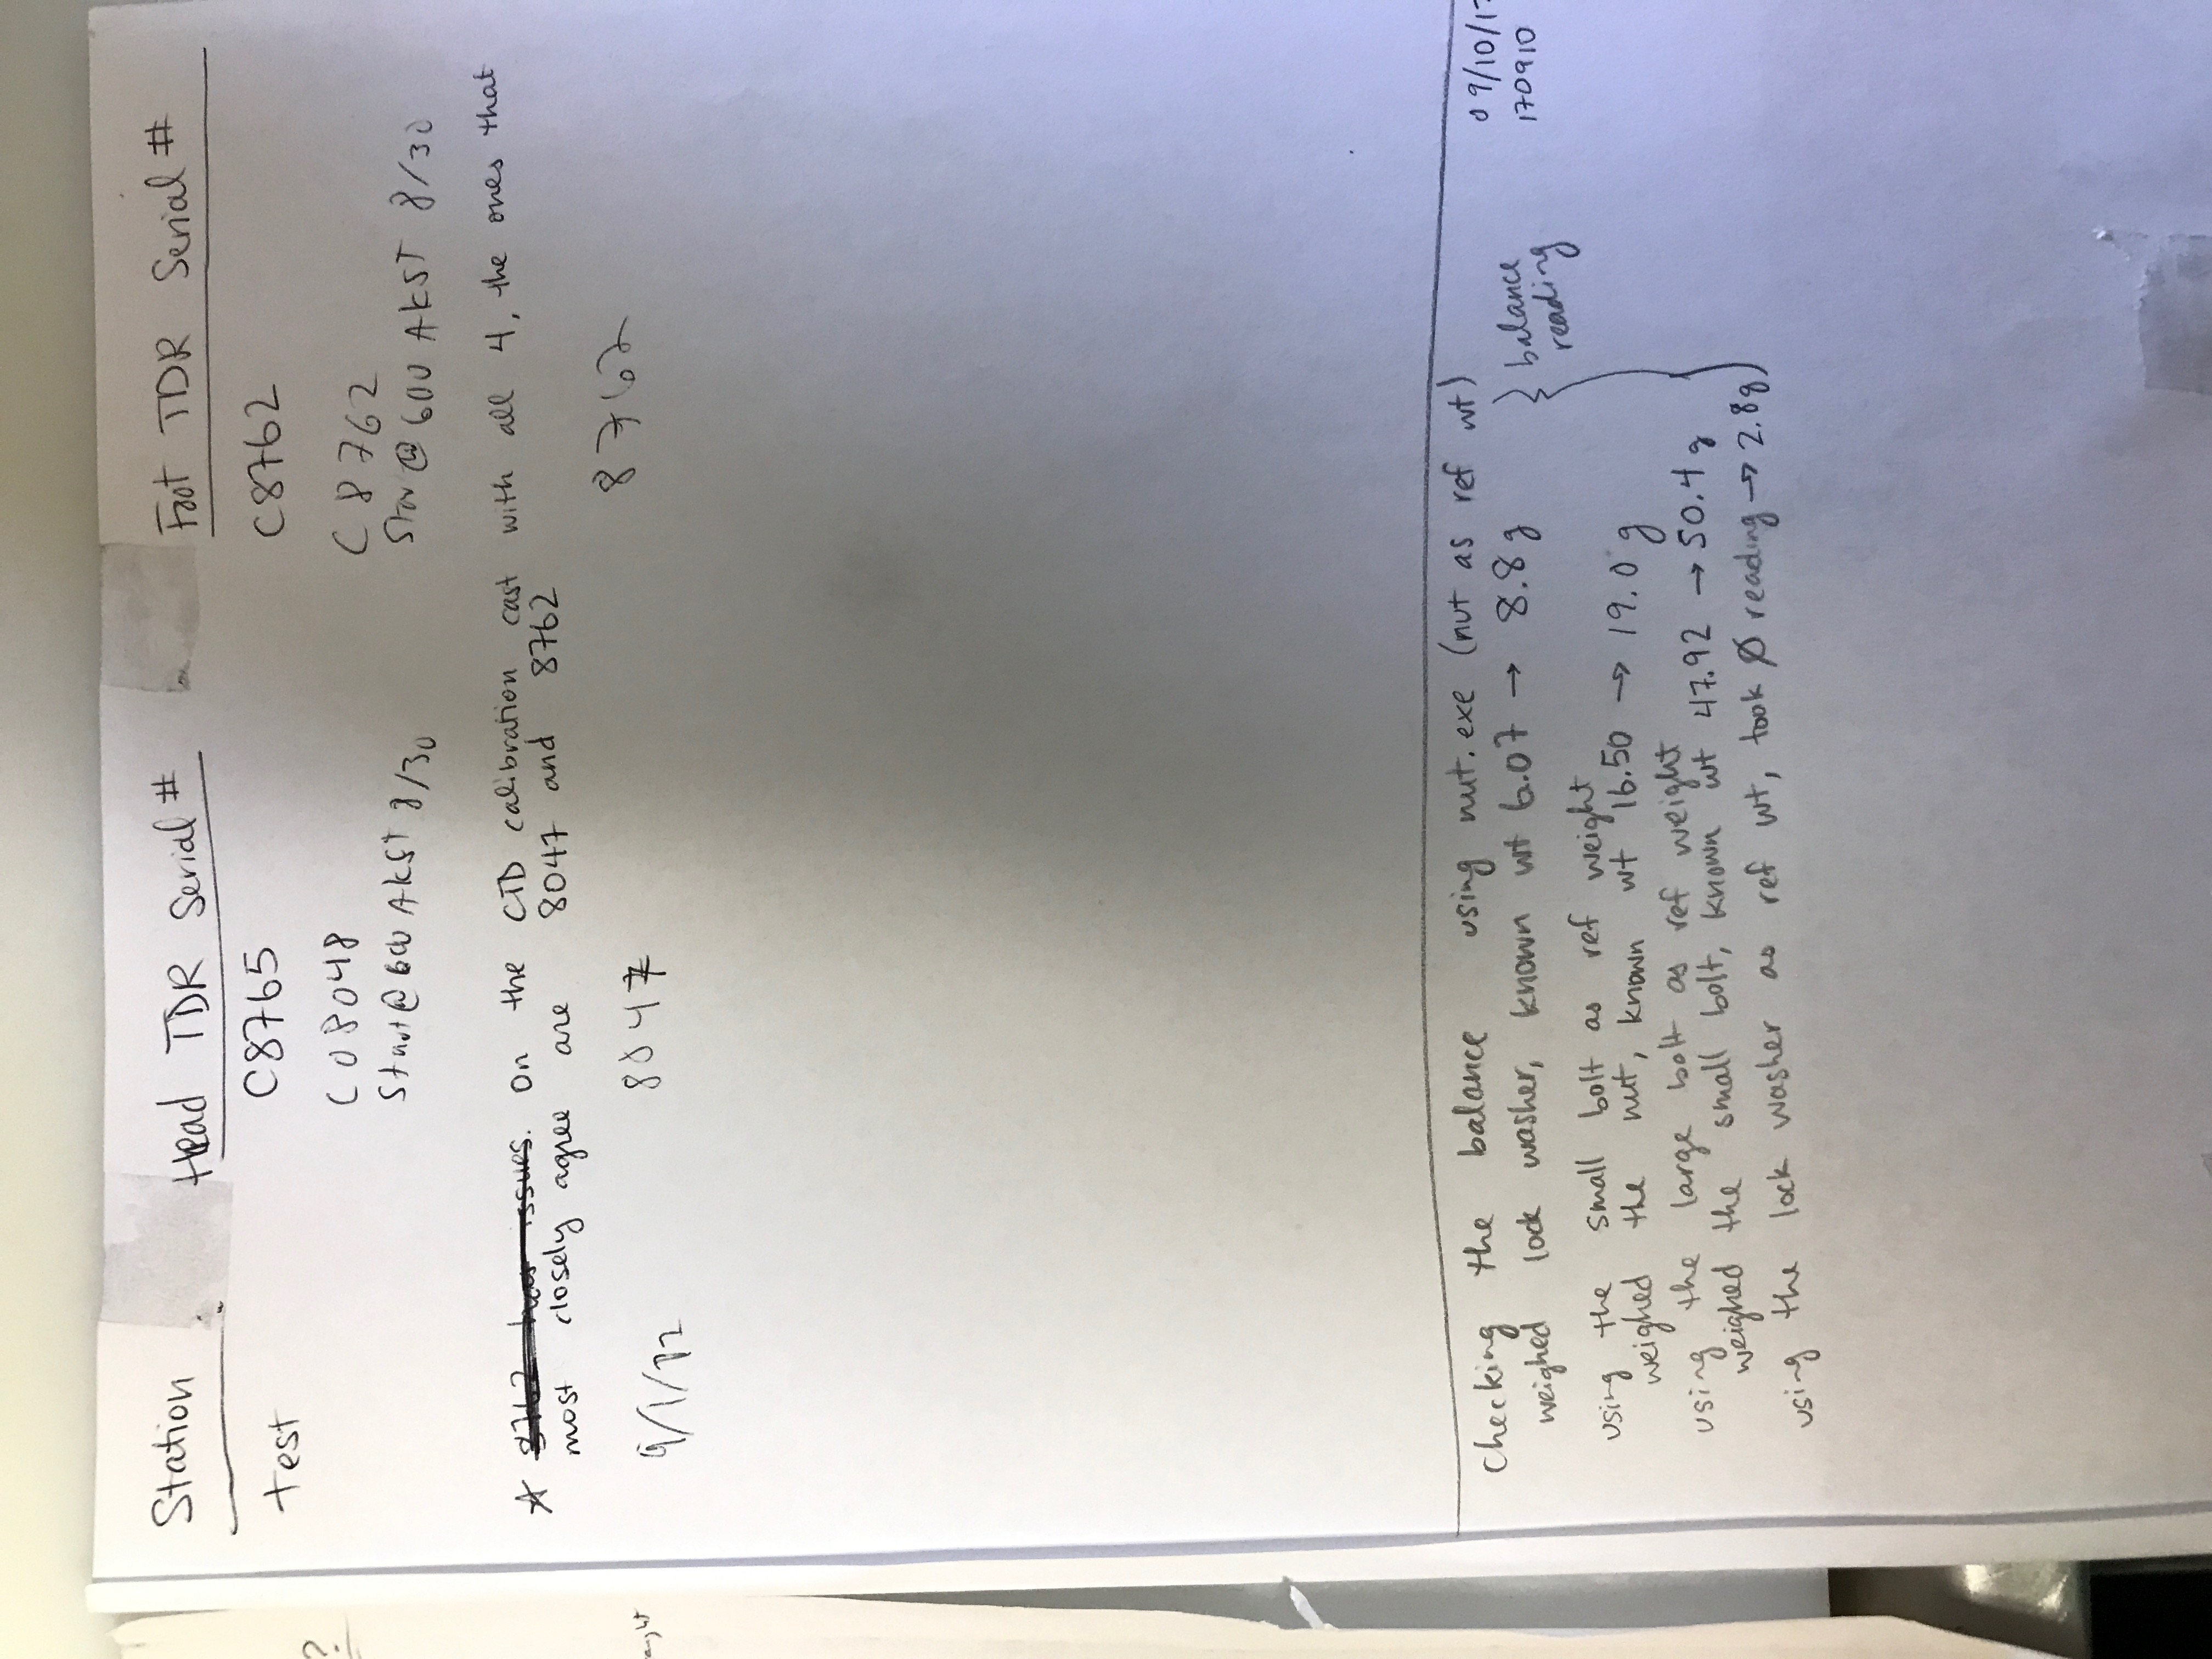 Station Head TDR Serial # Foot TDR Serial #
test C8765 C8762
C08048 C8762
Start @ 600 AKST 8/30 Star @ 600 AKST 8/30
☆ 8762 has issues. On the CTD calibration cast with all 4, the ones that
most closely agree are 8047 and 8762
9/1/ 8047 8762
?
Checking the balance using nut.exe (nut as ref wt) 09/10/17
weighed lock washer, known wt 6.07 → 8.8g } balance reading 170910
using the small bolt as ref weight
weighed the nut, known wt 16.50 → 19.0 g
using the large bolt as ref weight
weighed the small bolt, known wt 47.92 → 50.4 g
using the lock washer as ref wt, took Ø reading → 2.8g